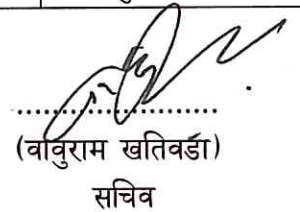 (वावुराम खतिवडा)
सचिव